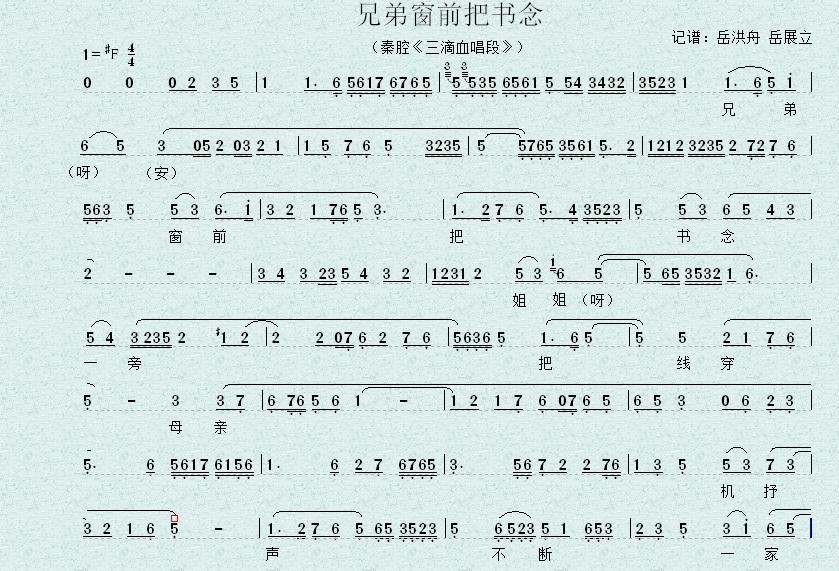 兄弟窗前把书念
（秦腔《三滴血唱段》）
记谱：岳洪舟 岳展立
1=#F 4/4
0 0 0 2 3 5 | 1 1. 6 5617 6765 | 3 3 5 535 6561 5 54 3432 | 3523 1 1. 6 5 i |
兄 弟
6 5 3 05 2 03 2 1 | 1 5 7 6 5 3235 | 5 5765 3561 5. 2 | 1212 3235 2 72 7 6 |
（呀） （安）
563 5 5 3 6. i | 3 2 1 76 5 3. | 1. 2 7 6 5. 4 3523 | 5 5 3 6 5 4 3 |
窗 前 把 书 念
2 - - - | 3 4 3 23 5 4 3 2 | 1231 2 5 3 i 6 5 | 5 65 3532 1 6. |
姐 姐 （呀）
5 4 3 235 2 #1 2 | 2 2 07 6 2 7 6 | 5636 5 1. 6 5 | 5 5 2 1 7 6 |
一 旁 把 线 穿
5 - 3 3 7 | 6 76 5 6 1 - | 1 2 1 7 6 07 6 5 | 6 5 3 0 6 2 3 |
母 亲
5. 6 5617 6156 | 1. 6 2 7 6765 | 3. 56 7 2 2 76 | 1 3 5 5 3 7 3 |
机 抒
3 2 1 6 5 - | 1. 2 7 6 5 65 3523 | 5 6523 5 1 653 | 2 3 5 3 i 6 5 |
声 不 断 一 家